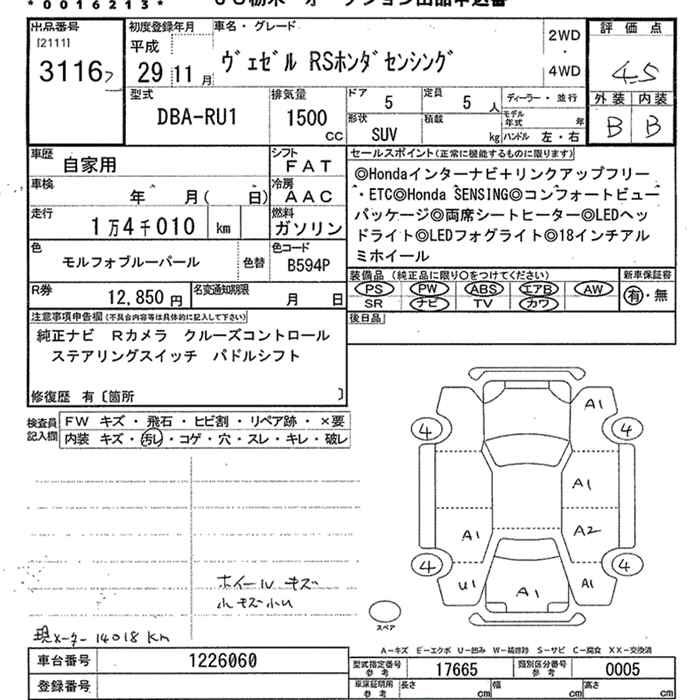 *0016213*
出品番号
[2111]
3116
初度登録年月
平成
29 11 月
車名・グレード
ヴェゼル RSホンダセンシング
2WD
・
4WD
評価点
4.5
外装 内装
B B
型式
DBA-RU1
排気量
1500
CC
ドア 5
定員 5 人
形状 SUV
積載 kg
ディーラー・並行
モデル年式 年
ハンドル 左・右
車歴 自家用
シフト FAT
車検 年 月( 日)
冷房 AAC
走行 1万4千010 km
燃料 ガソリン
色 モルフォブルーパール
色替
色コード B594P
R券 12,850 円
名変通知期限 月 日
セールスポイント(正常に機能するものに限ります)
◎Hondaインターナビ＋リンクアップフリー
・ETC◎Honda SENSING◎コンフォートビュー
パッケージ◎両席シートヒーター◎LEDヘッ
ドライト◎LEDフォグライト◎18インチアル
ミホイール
装備品 (純正品に限り○をつけてください)
新車保証書
PS PW ABS エアB AW
SR ナビ TV カワ
有・無
後日品
注意事項申告欄(不具合内容等は具体的に記入して下さい)
純正ナビ Rカメラ クルーズコントロール
ステアリングスイッチ パドルシフト
修復歴 有〔箇所 〕
検査員記入欄
FW キズ・飛石・ヒビ割・リペア跡・×要
内装 キズ・汚レ・コゲ・穴・スレ・キレ・破レ
A1
4 4
A1
A1 A2
4 4
U1 A1 A1
ホイール キズ
小キズ小U
スペア
現メーター 14018 Km
A-キズ E-エクボ U-凹み W-補修跡 S-サビ C-腐食 XX-交換済
車台番号 1226060
型式指定番号 参考 17665
類別区分番号 参考 0005
登録番号
車庫証明用 参考
長さ cm
幅 cm
高さ cm